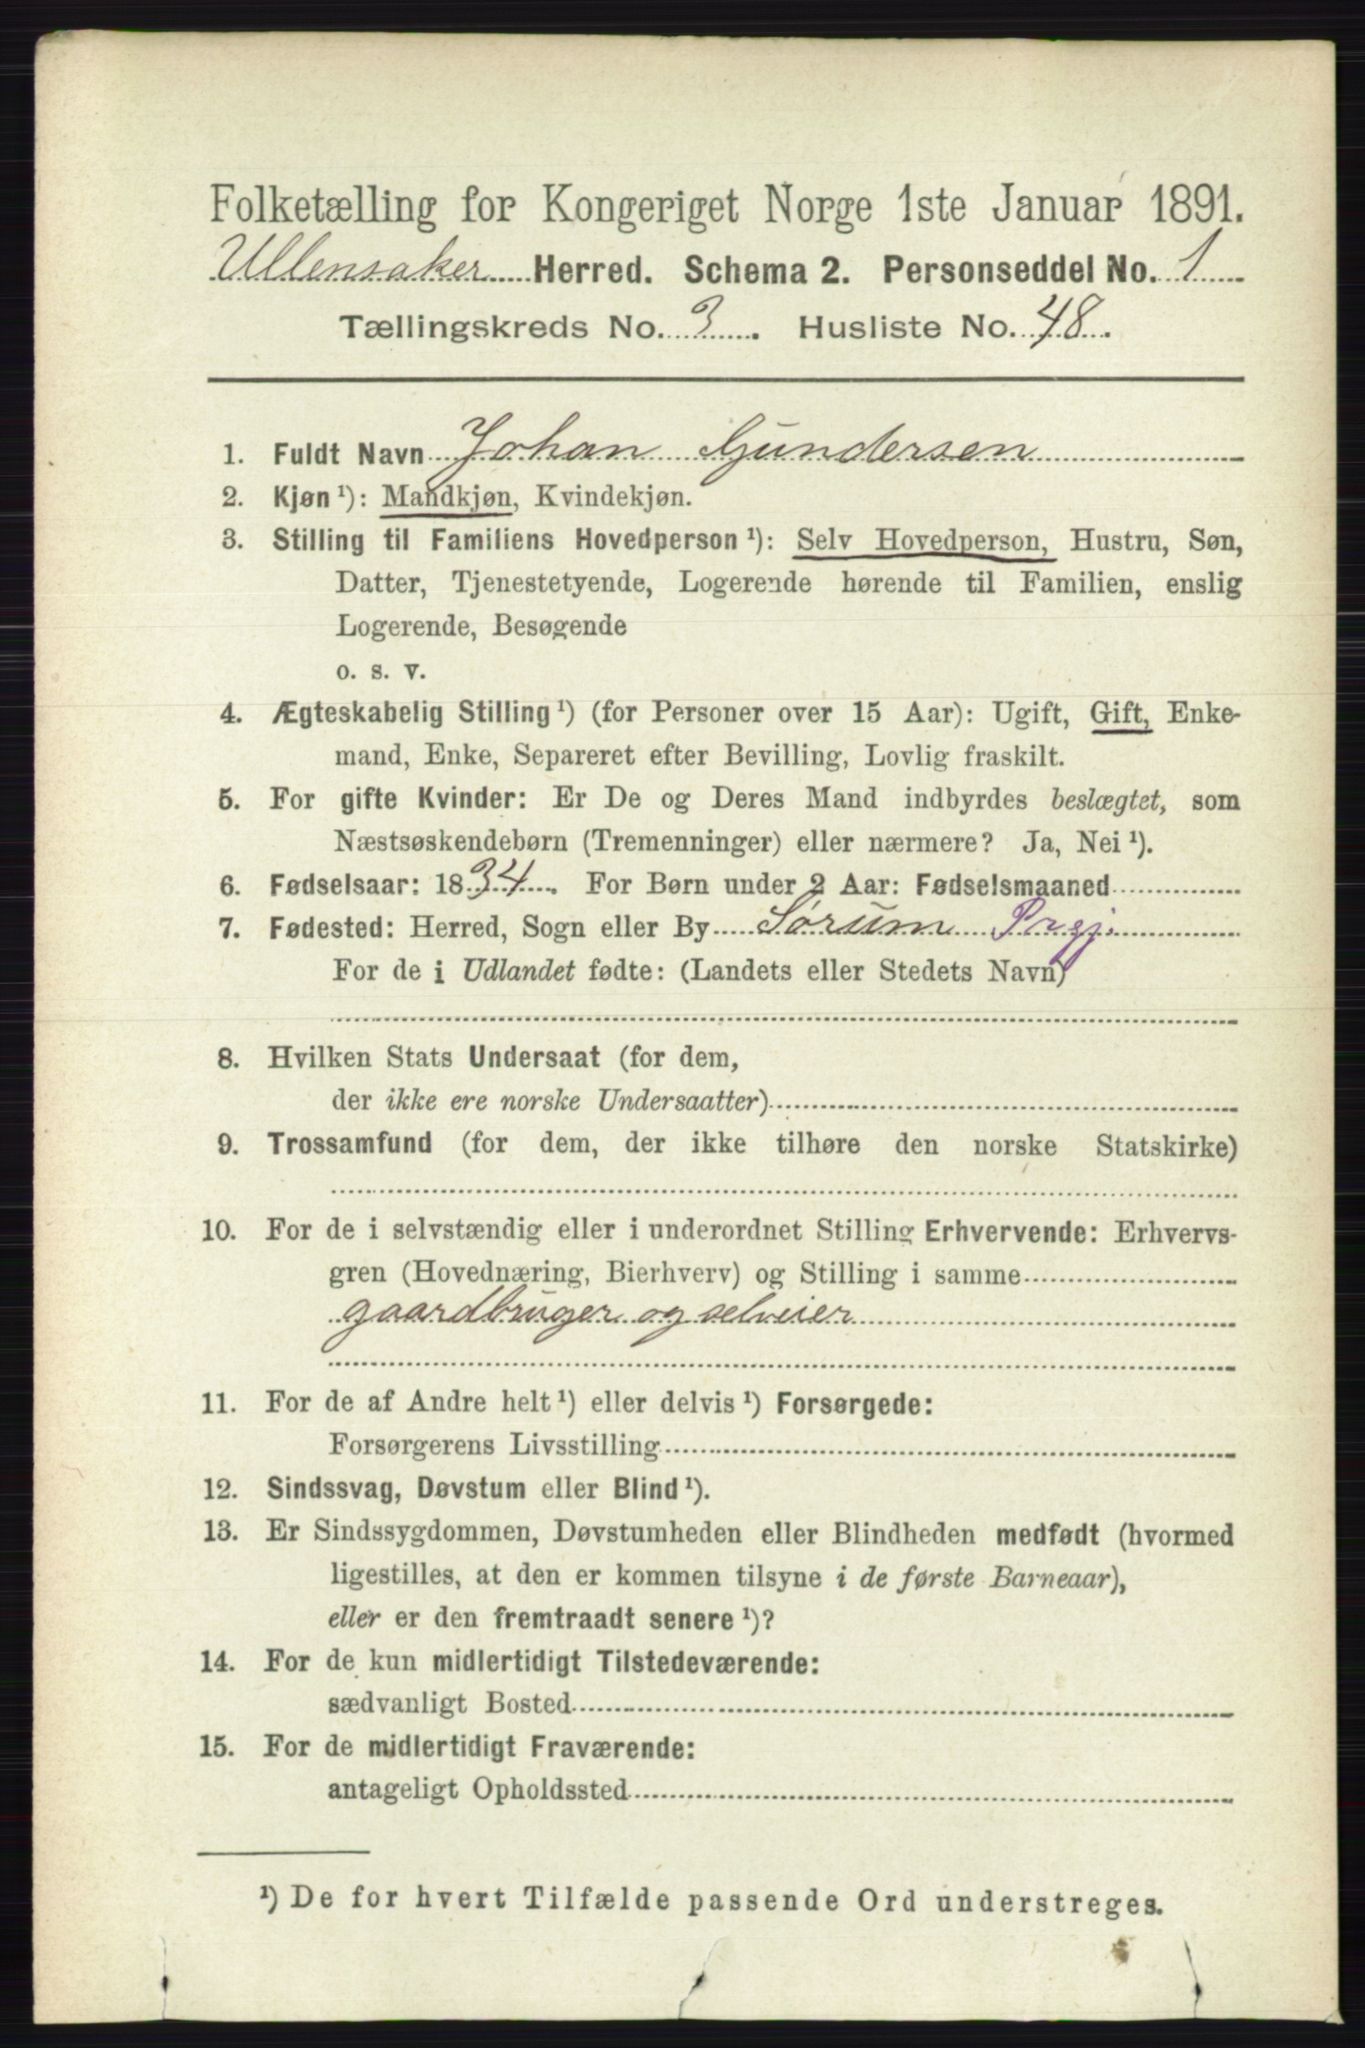 Folketælling for Kongeriget Norge 1ste Januar 1891.
Ullensaker Herred. Schema 2. Personseddel No. 1
Tællingskreds No. 3. Husliste No. 48.
1. Fuldt Navn Johan Gundersen
2. Kjøn ¹): Mandkjøn, Kvindekjøn.
3. Stilling til Familiens Hovedperson ¹): Selv Hovedperson, Hustru, Søn,
Datter, Tjenestetyende, Logerende hørende til Familien, enslig
Logerende, Besøgende
o. s. v.
4. Ægteskabelig Stilling ¹) (for Personer over 15 Aar): Ugift, Gift, Enke-
mand, Enke, Separeret efter Bevilling, Lovlig fraskilt.
5. For gifte Kvinder: Er De og Deres Mand indbyrdes beslægtet, som
Næstsøskendebørn (Tremenninger) eller nærmere? Ja, Nei ¹).
6. Fødselsaar: 1834. For Børn under 2 Aar: Fødselsmaaned
7. Fødested: Herred, Sogn eller By Sørum Prgj.
For de i Udlandet fødte: (Landets eller Stedets Navn)
8. Hvilken Stats Undersaat (for dem,
der ikke ere norske Undersaatter)
9. Trossamfund (for dem, der ikke tilhøre den norske Statskirke)
10. For de i selvstændig eller i underordnet Stilling Erhvervende: Erhvervs-
gren (Hovednæring, Bierhverv) og Stilling i samme
gaardbruger og selveier
11. For de af Andre helt ¹) eller delvis ¹) Forsørgede:
Forsørgerens Livsstilling
12. Sindssvag, Døvstum eller Blind ¹).
13. Er Sindssygdommen, Døvstumheden eller Blindheden medfødt (hvormed
ligestilles, at den er kommen tilsyne i de første Barneaar),
eller er den fremtraadt senere ¹)?
14. For de kun midlertidigt Tilstedeværende:
sædvanligt Bosted
15. For de midlertidigt Fraværende:
antageligt Opholdssted
¹) De for hvert Tilfælde passende Ord understreges.